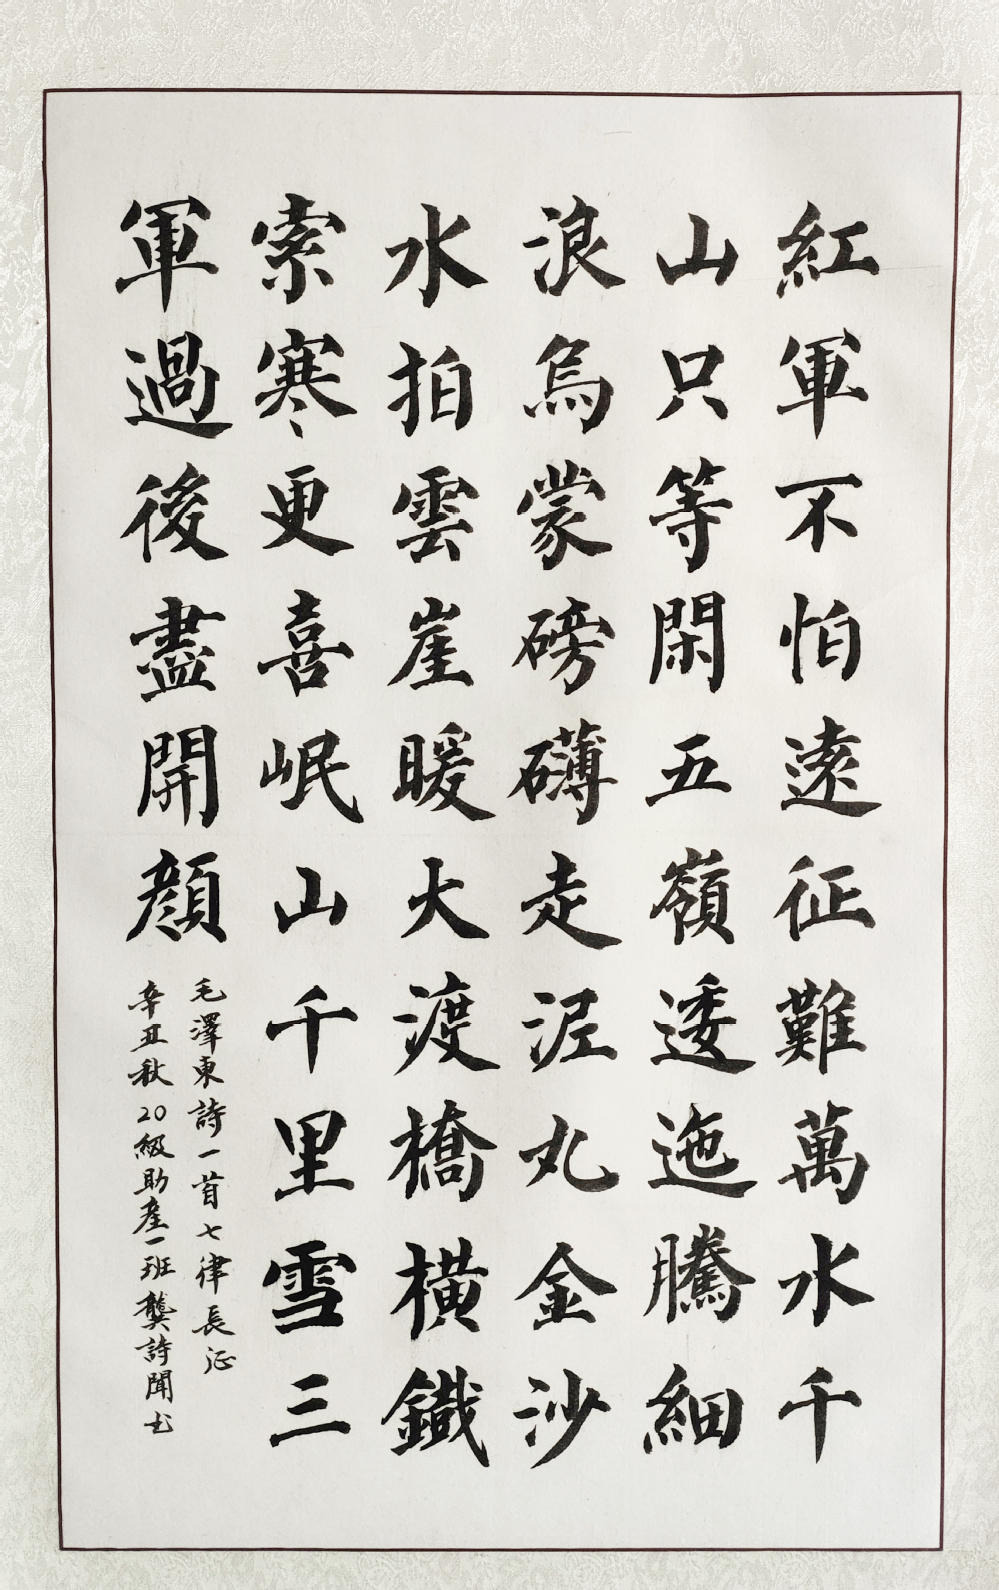 紅軍不怕遠征難萬水千
山只等閑五嶺逶迤騰細
浪烏蒙磅礴走泥丸金沙
水拍雲崖暖大渡橋橫鐵
索寒更喜岷山千里雪三
軍過後盡開顔
毛澤東詩一首七律長征
辛丑秋20級助産一班龔詩聞书